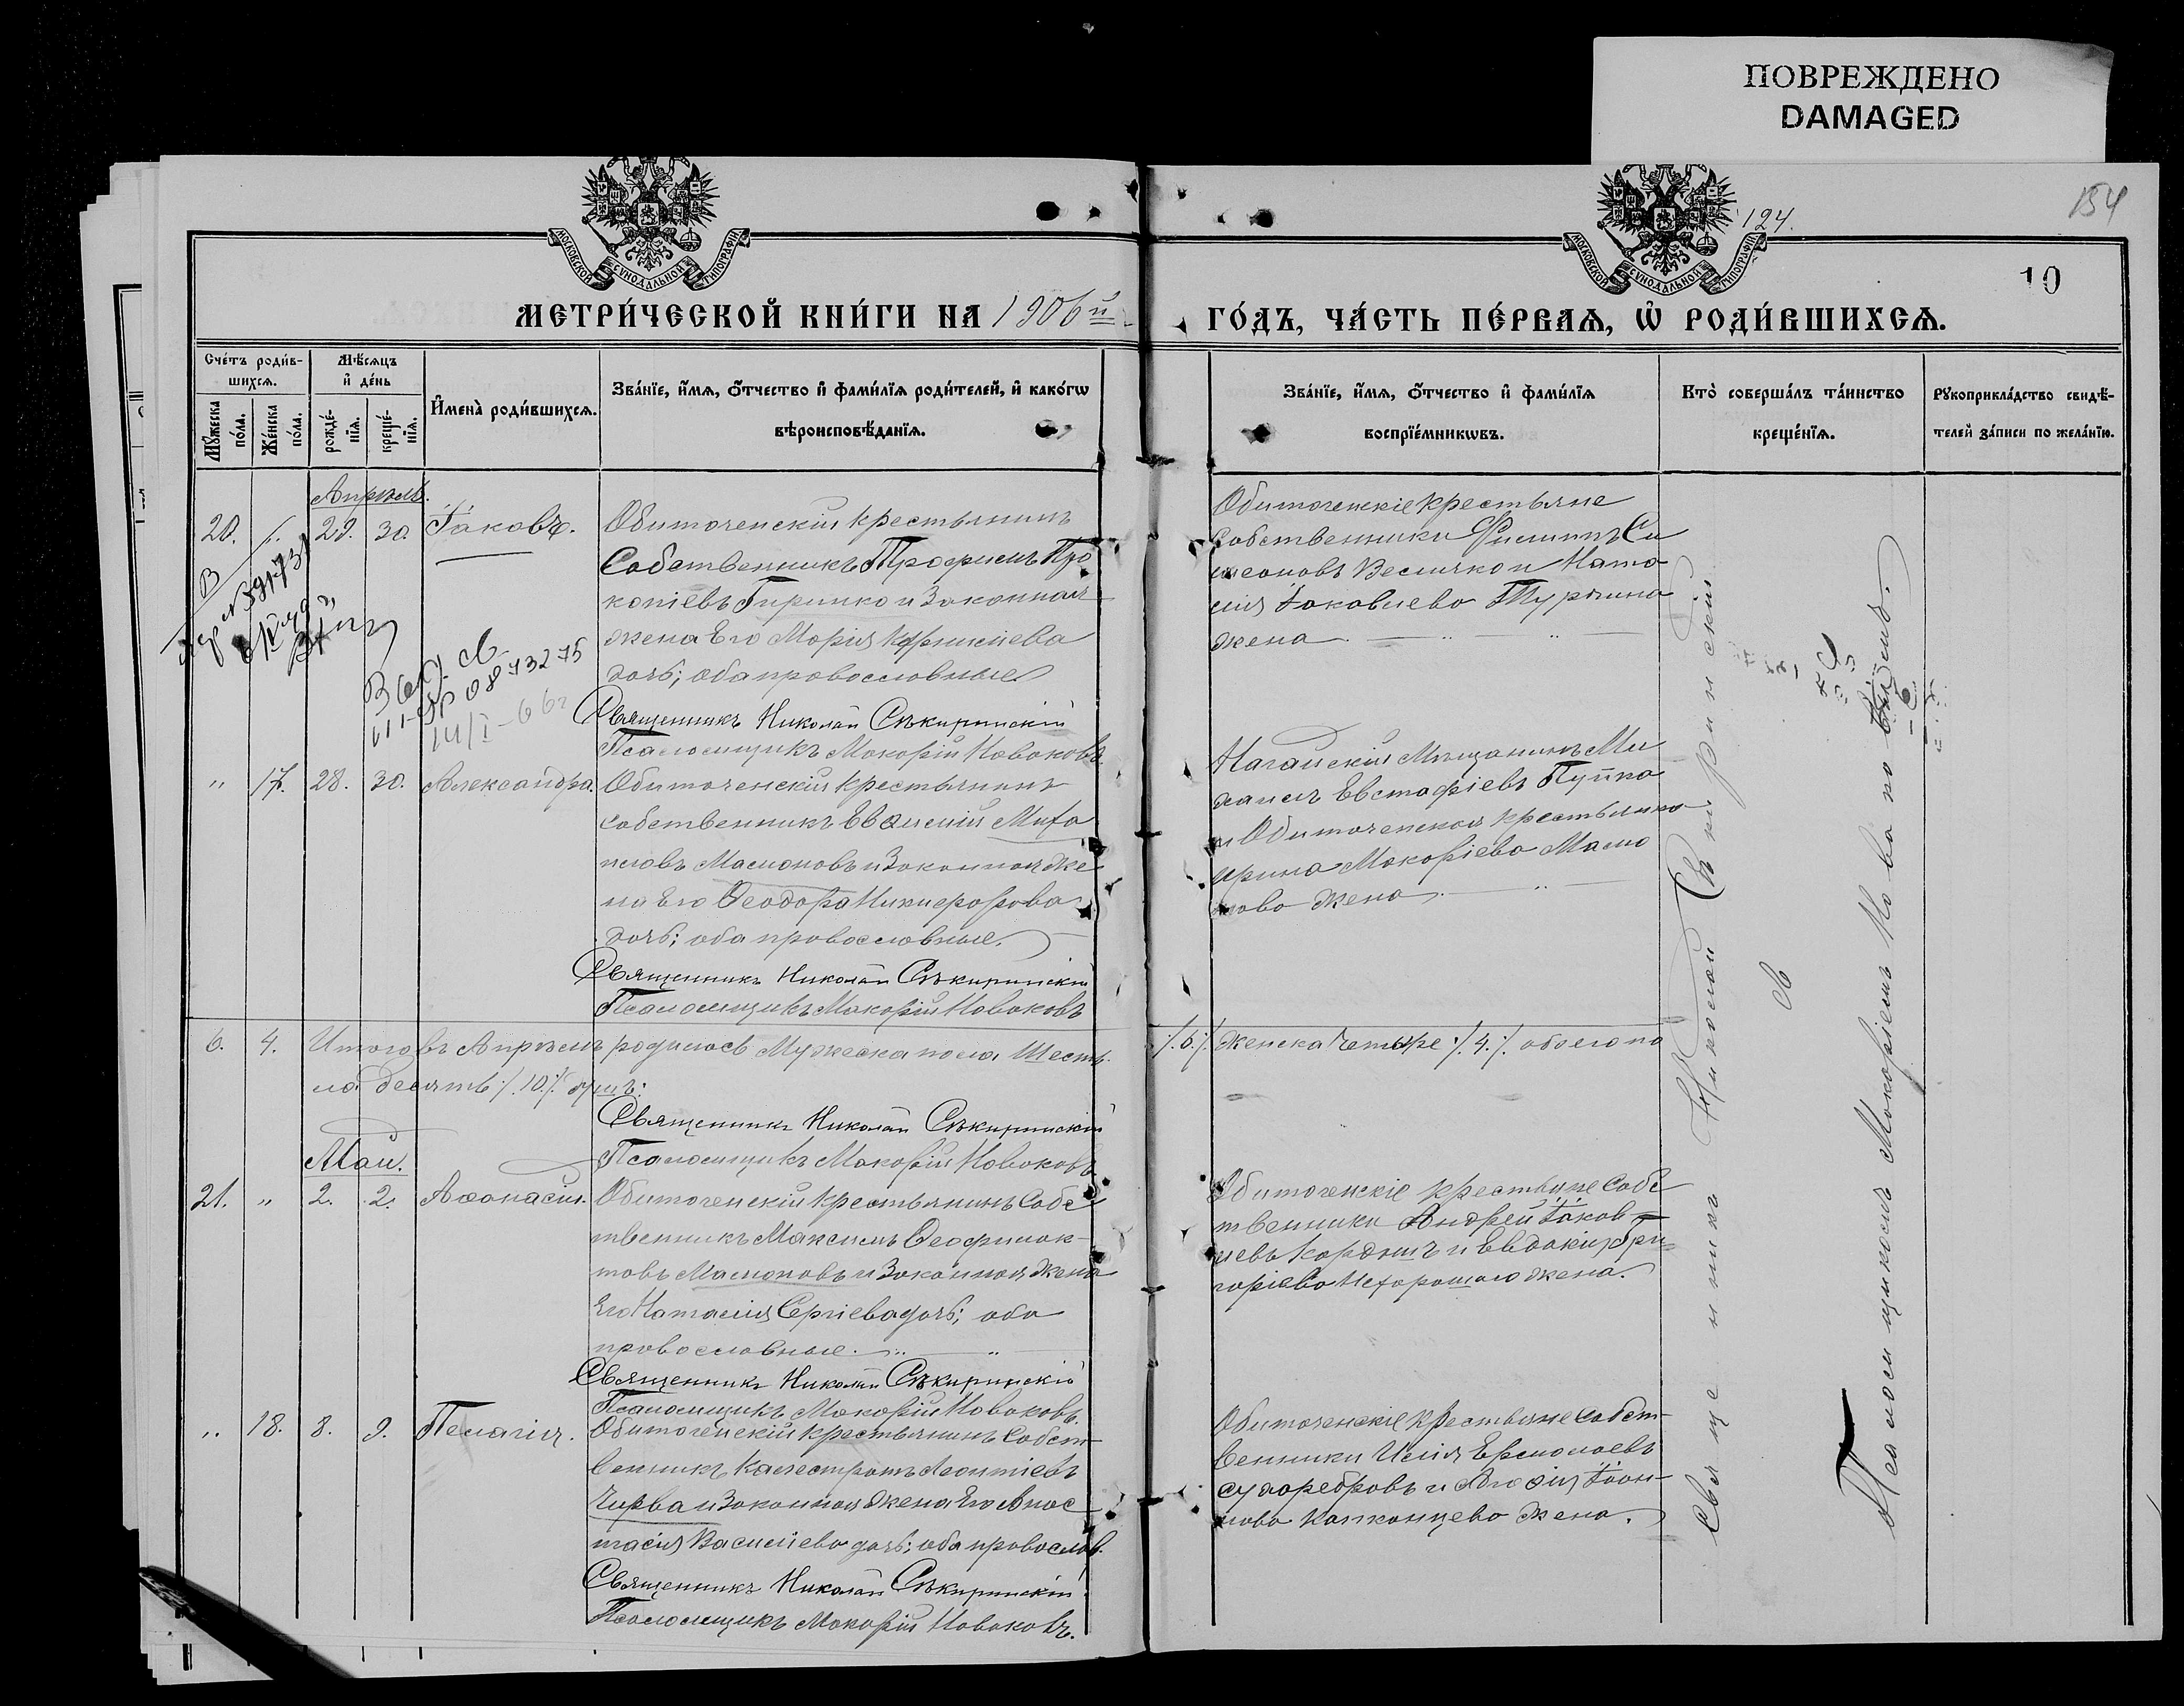 ПОВРЕЖДЕНО
DAMAGED
154
124.
10
МОСКОВСКОЙ СУНОДАЛЬНОЙ ТИПОГРАФІИ
МОСКОВСКОЙ СУНОДАЛЬНОЙ ТИПОГРАФІИ
МЕТРИ́ЧЕСКОЙ КНИ́ГИ НА 1906й
ГО́ДЪ, ЧА́СТЬ ПЕ́РВАѦ, Ѡ҆ РОДИ́ВШИХСѦ.
Сче́тъ роди́в-
шихсѧ.
Мꙋ́жеска по́ла.
Же́нска по́ла.
Мѣ́сѧцъ
и҆ де́нь
рожде́-нїѧ.
креще́-нїѧ.
И҆мена̀ роди́вшихсѧ.
Зва́нїе, и҆́мѧ, ѻ҆́тчество и҆ фами́лїѧ роди́телей, и҆ како́гѡ
вѣроисповѣ́данїѧ.
Зва́нїе, и҆́мѧ, ѻ҆́тчество и҆ фами́лїѧ
воспрїе́мникѡвъ.
Кто̀ соверша́лъ та́инство
креще́нїѧ.
Рꙋкоприкла́дство свидѣ́-
телей за́писи по жела́нїю.
Апрѣль.
20. 29. 30. Іаковъ.
Обиточенскій крестьянинъ
Собственникъ Трофимъ Про
копіевъ Гиринко и Законная
жена Его Марія
дочь; оба православные
Священникъ Николай Сѣкиринскій
Псаломщикъ Макарій Новаковъ
Обиточенскіе крестьяне
Собственники Филиппъ Си
меоновъ Величко и Ната
лія Іаковлева
жена
" 17. 28. 30. Александра.
Обиточенскій крестьянинъ
собственникъ Евѳимій Миха
иловъ Мамоновъ и Законная Же
на Его Ѳеодора Никифорова
дочь; оба православные.
Священникъ Николай Сѣкиринскій
Псаломщикъ Макарій Новаковъ
Ногайскій Мѣщанинъ Ми
хаилъ Евстафіевъ
и Обиточенская крестьянка
Ирина Макаріева Мамо
нова жена
6. 4. Итого въ Апрѣлѣ родилось Мужеска пола Шесть
./.6./. женска Четыре ./.4./. обоего по
ла десять ./.10./. душъ:
Священникъ Николай Сѣкиринскій
Псаломщикъ Макарій Новаковъ
Май.
21. " 2. 2. Аѳанасій.
Обиточенскій крестьянинъ Собс
твенникъ Максимъ Ѳеофилак-
товъ Мамоновъ и Законная Жена
Его Наталія Сергіева дочь; оба
православные.
Священникъ Николай Сѣкиринскій
Псаломщикъ Макарій Новаковъ.
Обиточенскіе крестьяне Собс
твенники Андрей Іаков
левъ Кордышъ и Евдокія Гри
горіева Нехорошаго жена.
" 18. 8. 9. Пелагія.
Обиточенскій крестьянинъ Собст-
венникъ Калистратъ Леонтіевъ
Чирва и Законная Жена Его Анас
тасія Василіева дочь; оба православ.
Священникъ Николай Сѣкиринскій.
Псаломщикъ Макарій Новаковъ.
Обиточенскіе крестьяне Собст-
венники Илія Ермолаевъ
Сухоребровъ и Агаѳія Іоан-
нова Капканцева жена.
Священникъ Николай Сѣкиринскій
съ
Псаломщикомъ Макаріемъ Новаковымъ.